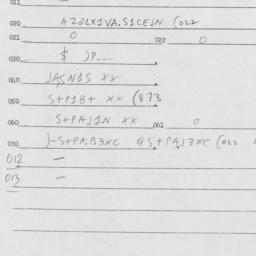 011 —
020 A20LX1VA,S1CEJN (022
021 0 022 0
030 $ )P...
040 JASN1S XX
050 S+P1B+ XX (873
060 S+PAJ1N XX 061 0
070 )-S+PA,B3XC QS+PAJ3XC (022
012 —
013 —